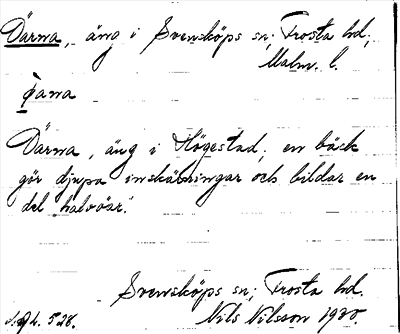 Därna, äng i Svensköps sn; Frosta hd,
Malm. l.
Därna, äng i Högestad; en bäck
gör djupa inskärningar och bildar en
del halvöar.
Svensköps sn; Frosta hd.
Nils Nilsson 1920.